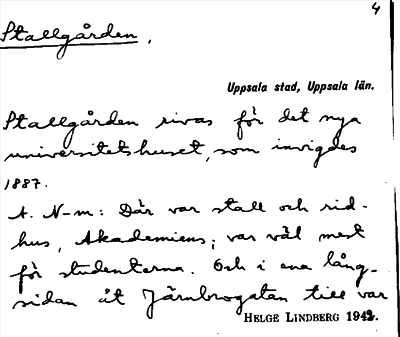 4
Stallgården.
Uppsala stad, Uppsala län.
Stallgården rivas för det nya
universitetshuset, som invigdes
1887.
A. N-m: Där var stall och rid-
hus, Akademiens; var väl mest
för studenterna. Och i ena lång-
sidan åt Järnbrogatan till var
HELGE LINDBERG 1942.